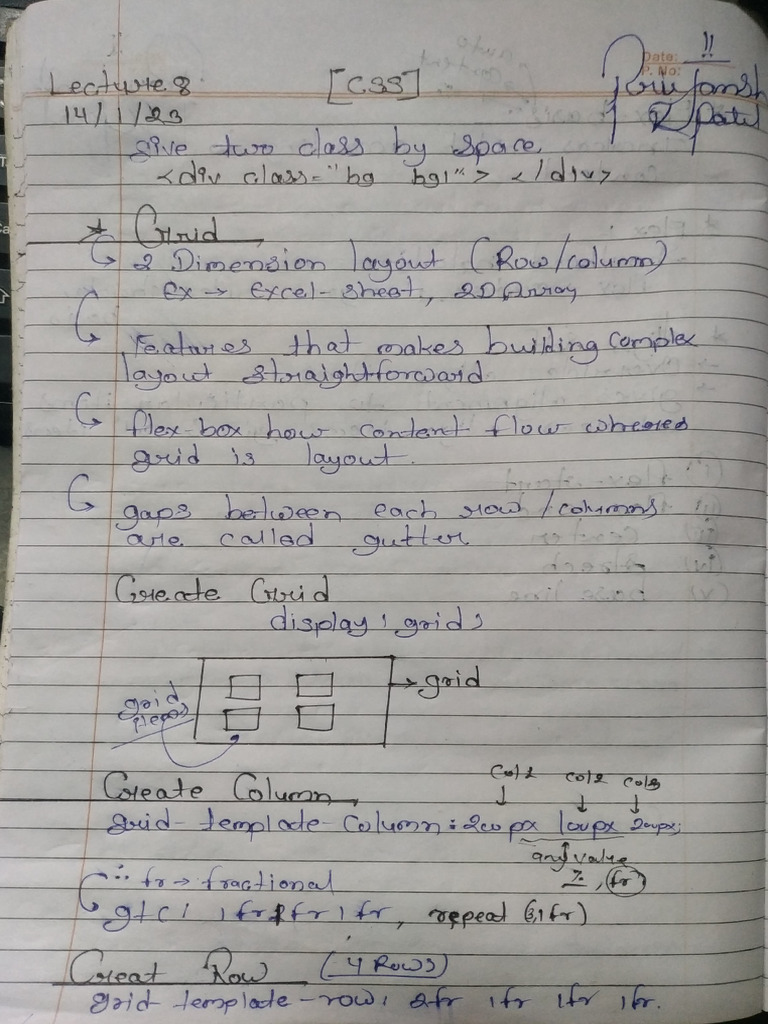 Date: !!
P. No:
Lecture 8 [CSS] Priyansh
14/1/23 R Patel
give two class by space.
<div class="bg bg1"> </div>
* Grid
2 Dimension layout (Row/column)
ex → excel-sheet, 2D Array
Features that makes building complex
layout straightforward
flex-box how content flow whereas
grid is layout.
gaps between each row/columns
are called gutter
Create Grid
display: grid;
→ grid
grid
items
Create Column
col1 col2 col3
grid-template-column: 200px 100px 200px;
any value
%, fr
∴ fr → fractional
gtc: 1fr 1fr 1fr, repeat (3,1fr)
Creat Row (4 Rows)
grid template-row: 2fr 1fr 1fr 1fr.